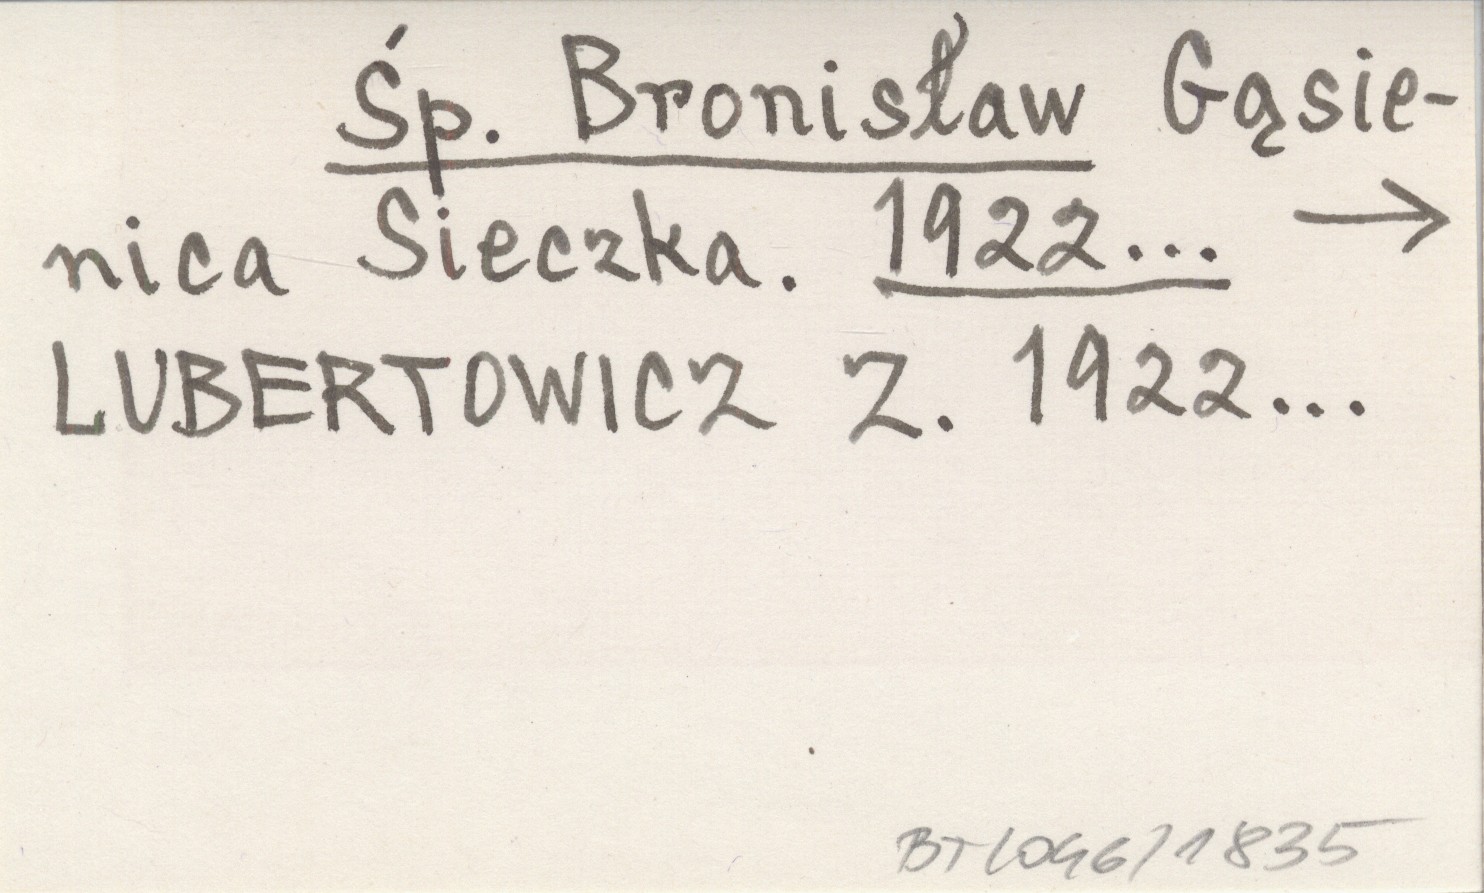 Śp. Bronisław Gąsie-
nica Sieczka. 1922... →
LUBERTOWICZ Z. 1922...
BT/046/1835